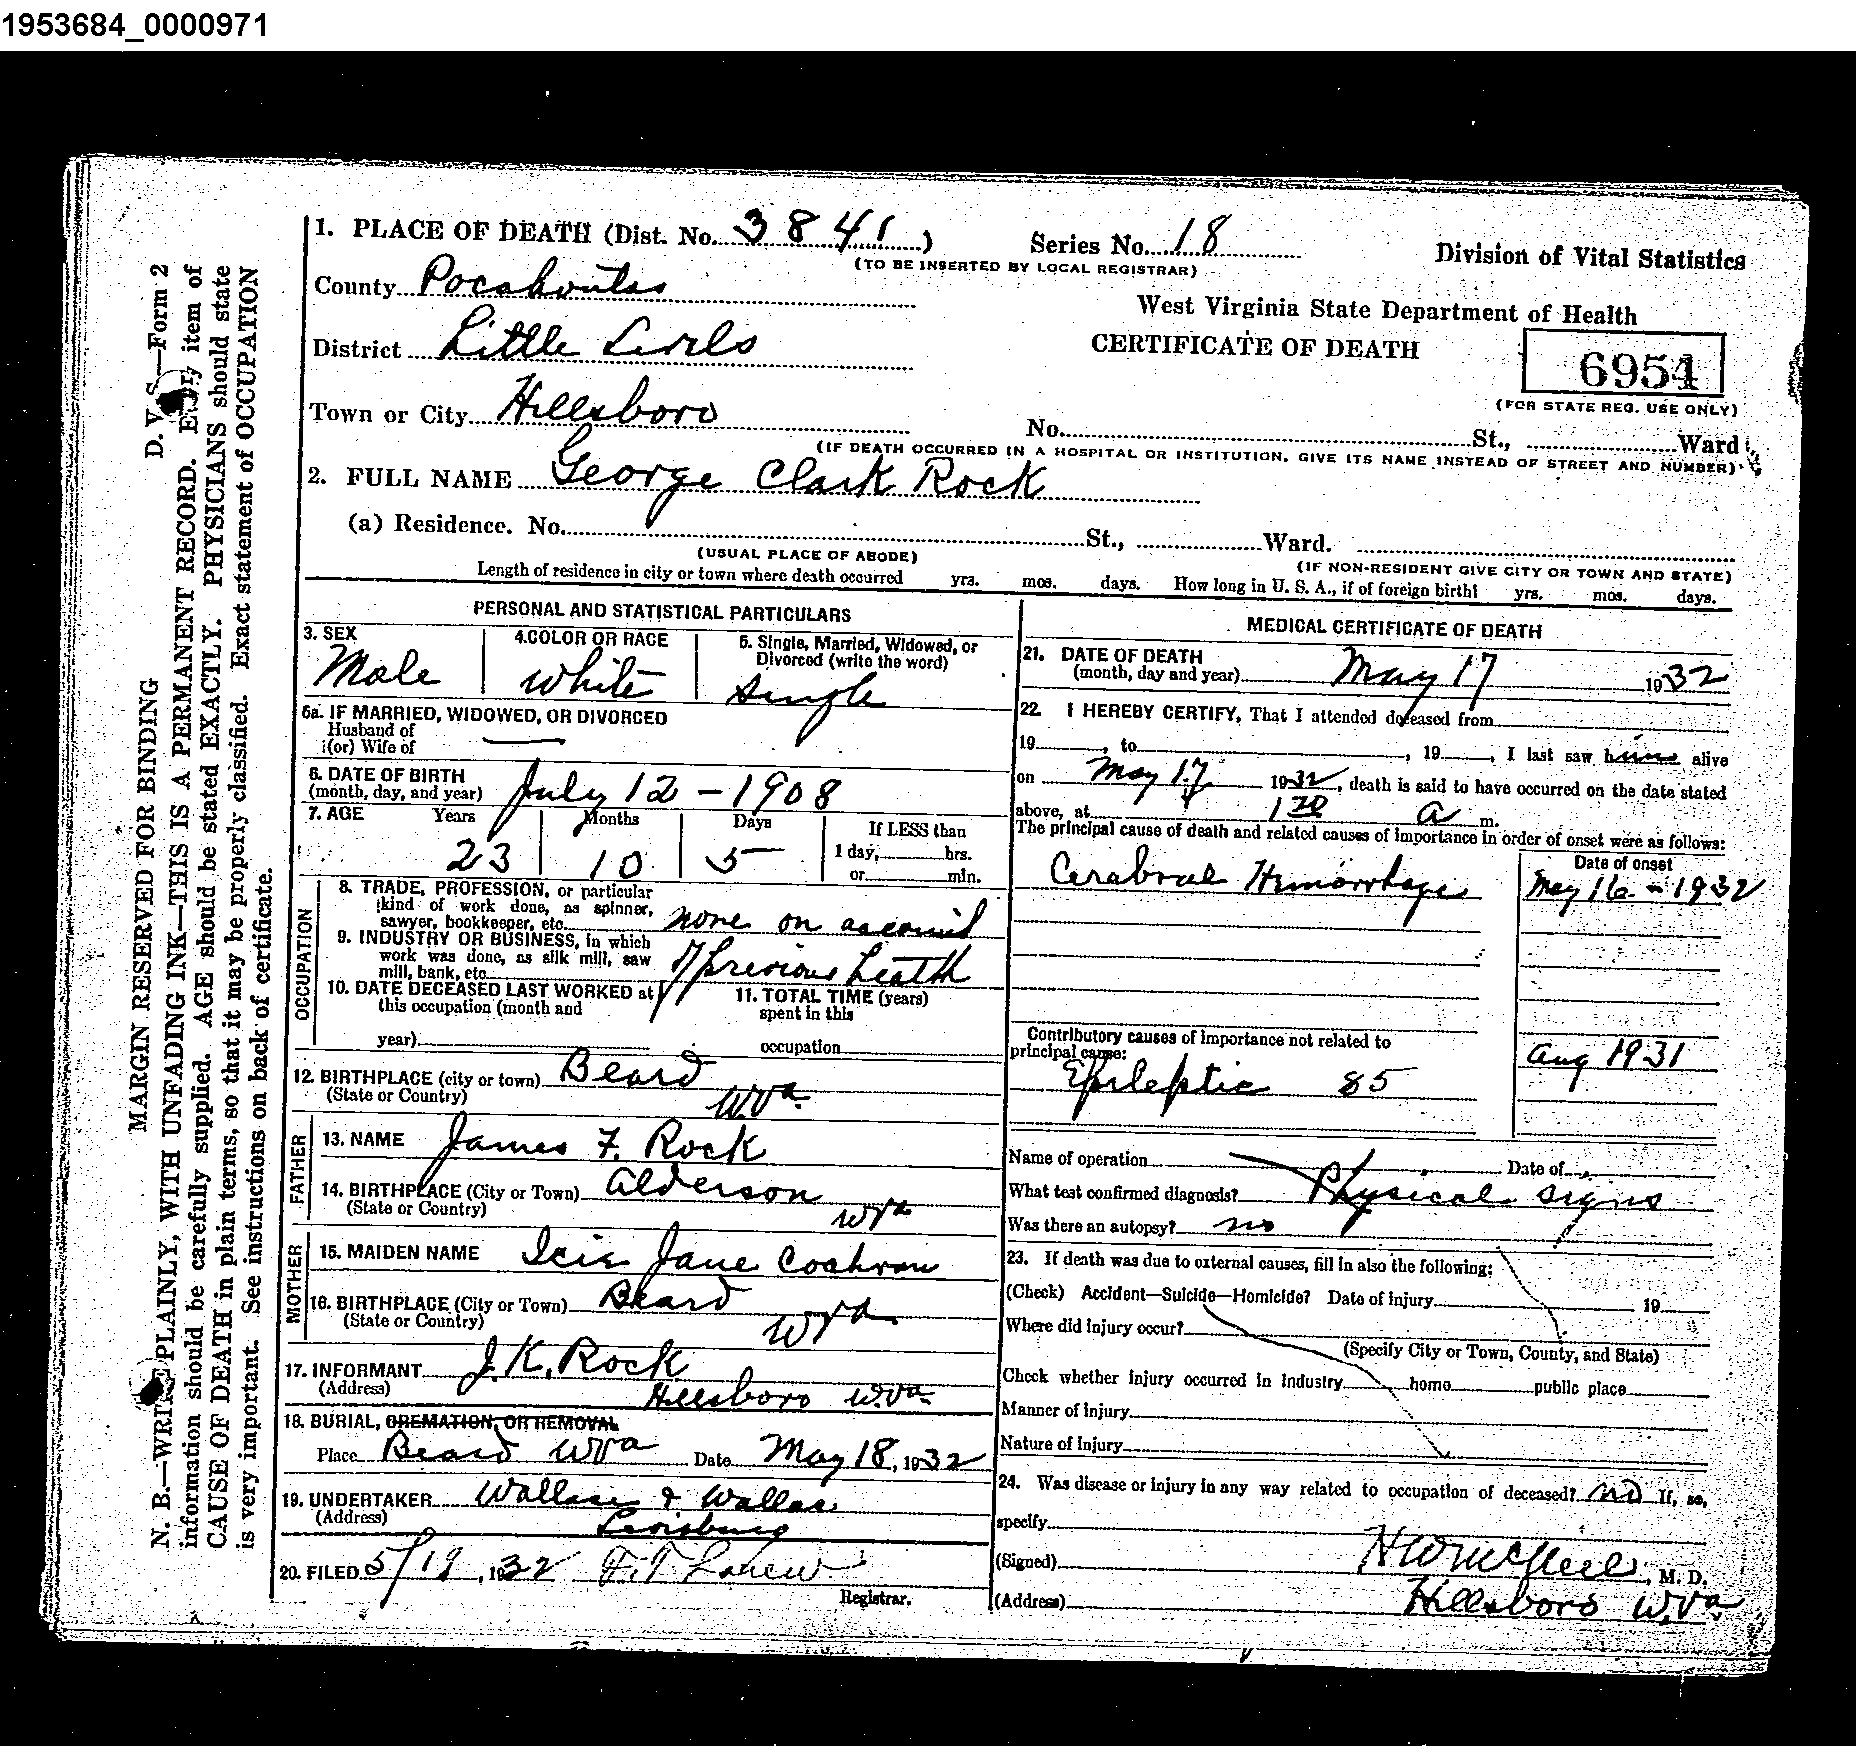 1953684_0000971
1. PLACE OF DEATH (Dist. No. 3841) Series No. 18
(TO BE INSERTED BY LOCAL REGISTRAR)
Division of Vital Statistics
County Pocahontas
West Virginia State Department of Health
District Little Levels
CERTIFICATE OF DEATH
6954
(FOR STATE REG. USE ONLY)
Town or City Hillsboro No. St., Ward
(IF DEATH OCCURRED IN A HOSPITAL OR INSTITUTION, GIVE ITS NAME INSTEAD OF STREET AND NUMBER)
2. FULL NAME George Clark Rock
(a) Residence. No. St., Ward.
(USUAL PLACE OF ABODE) (IF NON-RESIDENT GIVE CITY OR TOWN AND STATE)
Length of residence in city or town where death occurred yrs. mos. days. How long in U. S. A., if of foreign birth? yrs. mos. days.
PERSONAL AND STATISTICAL PARTICULARS
3. SEX 4. COLOR OR RACE 5. Single, Married, Widowed, or
Divorced (write the word)
Male White Single
5a. IF MARRIED, WIDOWED, OR DIVORCED
Husband of
(or) Wife of
6. DATE OF BIRTH
(month, day, and year) July 12 - 1908
7. AGE Years Months Days If LESS than
23 10 5 1 day, hrs.
or min.
OCCUPATION
8. TRADE, PROFESSION, or particular
kind of work done, as spinner,
sawyer, bookkeeper, etc. none on account
9. INDUSTRY OR BUSINESS, in which
work was done, as silk mill, saw
mill, bank, etc. of previous health
10. DATE DECEASED LAST WORKED at
this occupation (month and
year)
11. TOTAL TIME (years)
spent in this
occupation
12. BIRTHPLACE (city or town) Beard
(State or Country) W.Va.
FATHER
13. NAME James F. Rock
14. BIRTHPLACE (City or Town) Alderson
(State or Country) W Va
MOTHER
15. MAIDEN NAME Icie Jane Cochran
16. BIRTHPLACE (City or Town) Beard
(State or Country) W Va
17. INFORMANT J. K. Rock
(Address) Hillsboro W.Va.
18. BURIAL, CREMATION, OR REMOVAL
Place Beard W Va Date May 18, 1932
19. UNDERTAKER Wallace & Wallace
(Address) Lewisburg
20. FILED 5/19, 1932 F. T.
Registrar.
MEDICAL CERTIFICATE OF DEATH
21. DATE OF DEATH
(month, day and year) May 17 1932
22. I HEREBY CERTIFY, That I attended deceased from
19 , to , 19 , I last saw him alive
on May 17 1932, death is said to have occurred on the date stated
above, at 1 30 A m.
The principal cause of death and related causes of importance in order of onset were as follows:
Date of onset
Cerabral Hemorrhage May 16 - 1932
Contributory causes of importance not related to
principal cause:
Epileptic 85 Aug 1931
Name of operation Date of
What test confirmed diagnosis? Physical signs
Was there an autopsy? no
23. If death was due to external causes, fill in also the following:
(Check) Accident—Suicide—Homicide? Date of injury 19
Where did injury occur?
(Specify City or Town, County, and State)
Check whether injury occurred in industry home public place
Manner of injury
Nature of injury
24. Was disease or injury in any way related to occupation of deceased? no If, so,
specify
(Signed) H W McNeel, M. D.
(Address) Hillsboro W.Va.
D. V. S.—Form 2
MARGIN RESERVED FOR BINDING
N. B.—WRITE PLAINLY, WITH UNFADING INK—THIS IS A PERMANENT RECORD. Every item of
information should be carefully supplied. AGE should be stated EXACTLY. PHYSICIANS should state
CAUSE OF DEATH in plain terms, so that it may be properly classified. Exact statement of OCCUPATION
is very important. See instructions on back of certificate.